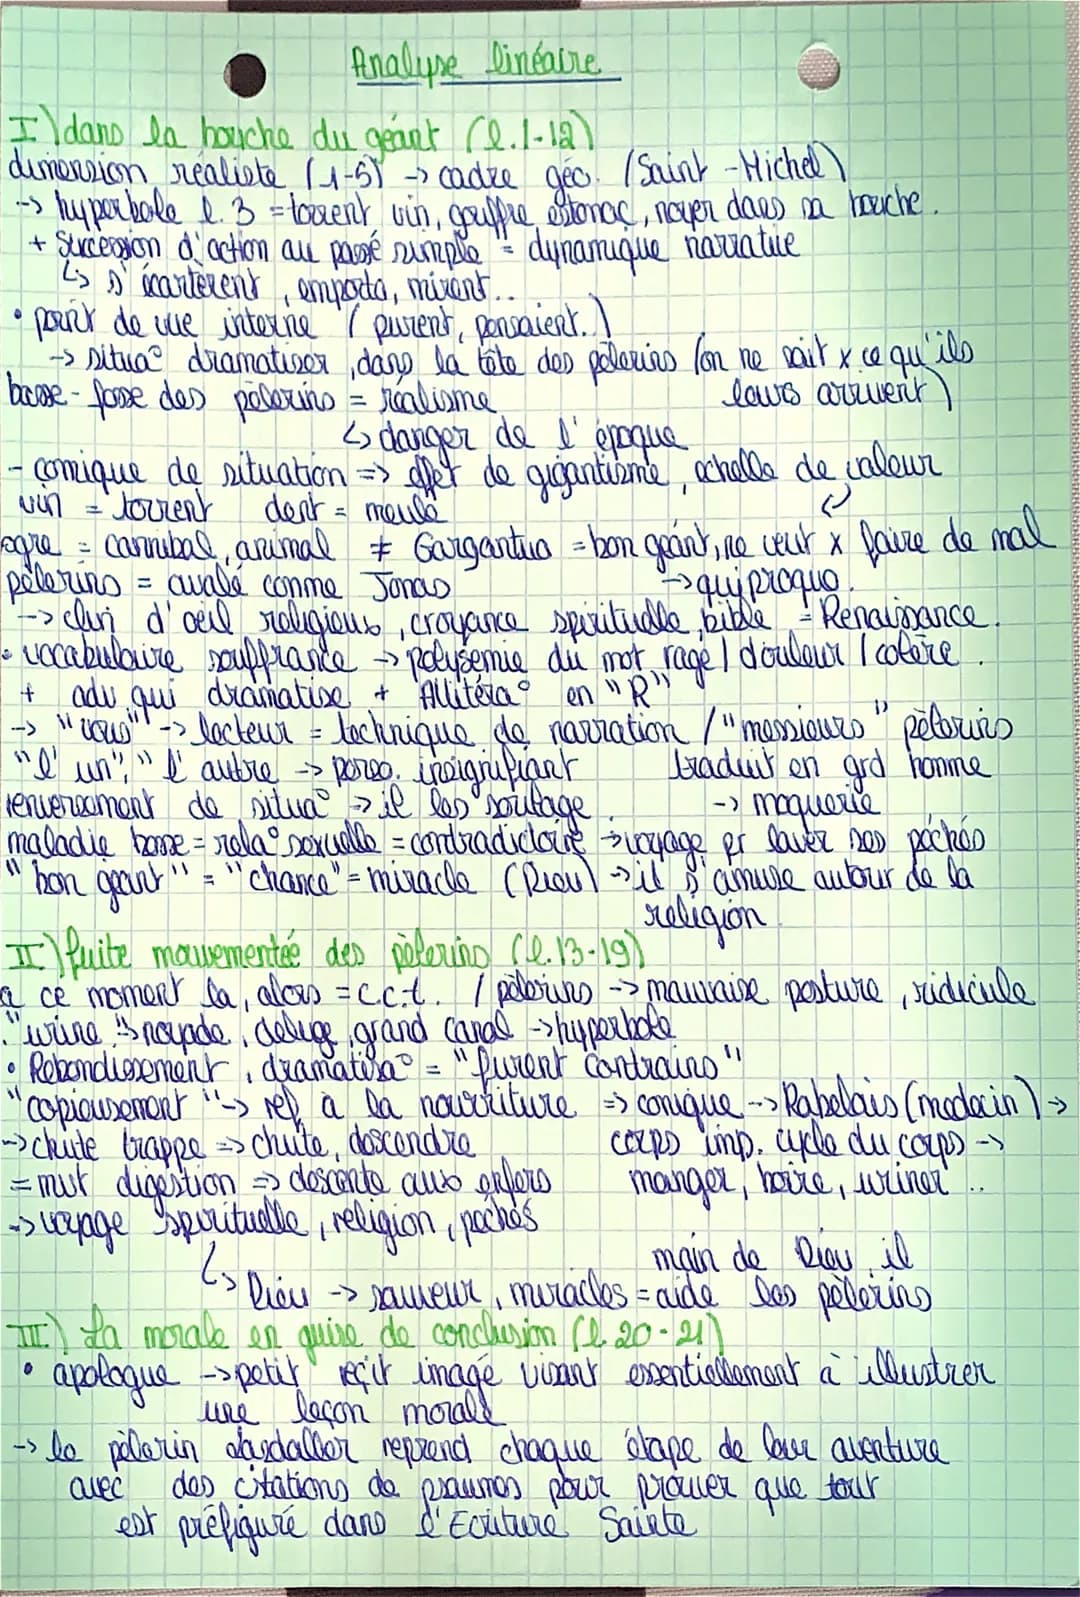 Analyse linéaire
I) dans la bouche du géant (l.1-12)
dimension réaliste (1-5) -> cadre géo. (Saint-Michel)
-> hyperbole l. 3 = torrent vin, gouffre estomac, noyer dans sa bouche.
+ succession d'action au passé simple = dynamique narrative
↳ s'écartèrent, emporta, mirent..
• point de vue interne (purent, pensaient.)
-> situa° dramatiser, dans la tête des pèlerins (on ne sait x ce qu'ils
basse-fosse des pèlerins = réalisme leurs arrivent)
↳ danger de l'époque
- comique de situation => effet de gigantisme, échelle de valeur
vin = torrent dent = meule
ogre = cannibal, animal ≠ Gargantua = bon géant, ne veut x faire de mal
pèlerins = avalé comme Jonas -> quiproquo.
-> clin d'oeil religieux, croyance spirituelle, bible = Renaissance.
• vocabulaire souffrance -> polysémie du mot rage / douleur / colère.
+ adv qui dramatise + Allitéra° en "R"
-> "vous" -> lecteur = technique de narration / "messieurs" pèlerins
"l'un", "l'autre -> perso. insignifiant traduit en grd homme
renversement de situa° -> il les soulage. -> moquerie
maladie honte = rela° sexuelle = contradictoire -> voyage pr laver ses péchés
"bon géant" = "chance" = miracle (Dieu) -> il s'amuse autour de la
religion.
II) fuite mouvementée des pèlerins (l.13-19)
à ce moment la, alors = c.c.t. / pèlerins -> mauvaise posture, ridicule
"urine" -> noyade, deluge, grand canal -> hyperbole
• Rebondissement, dramatisa° = "furent contrains"
"copieusement" -> ref à la nourriture => comique -> Rabelais (medecin) ->
-> chute trappe => chute, descendre corps imp. cycle du corps ->
= mvt digestion => descente aux enfers manger, boire, uriner ..
-> voyage spirituelle, religion, pechés
main de Dieu, il
↳ Dieu -> sauveur, miracles = aide les pèlerins
III) La morale en guise de conclusion (l.20-21)
• apologue -> petit reçit imagé visant essentiellement à illustrer
une leçon morale
-> le pèlerin dasdaller reprend chaque étape de leur aventure
avec des citations de psaumes pour prouver que tout
est préfiguré dans l'Ecriture Sainte